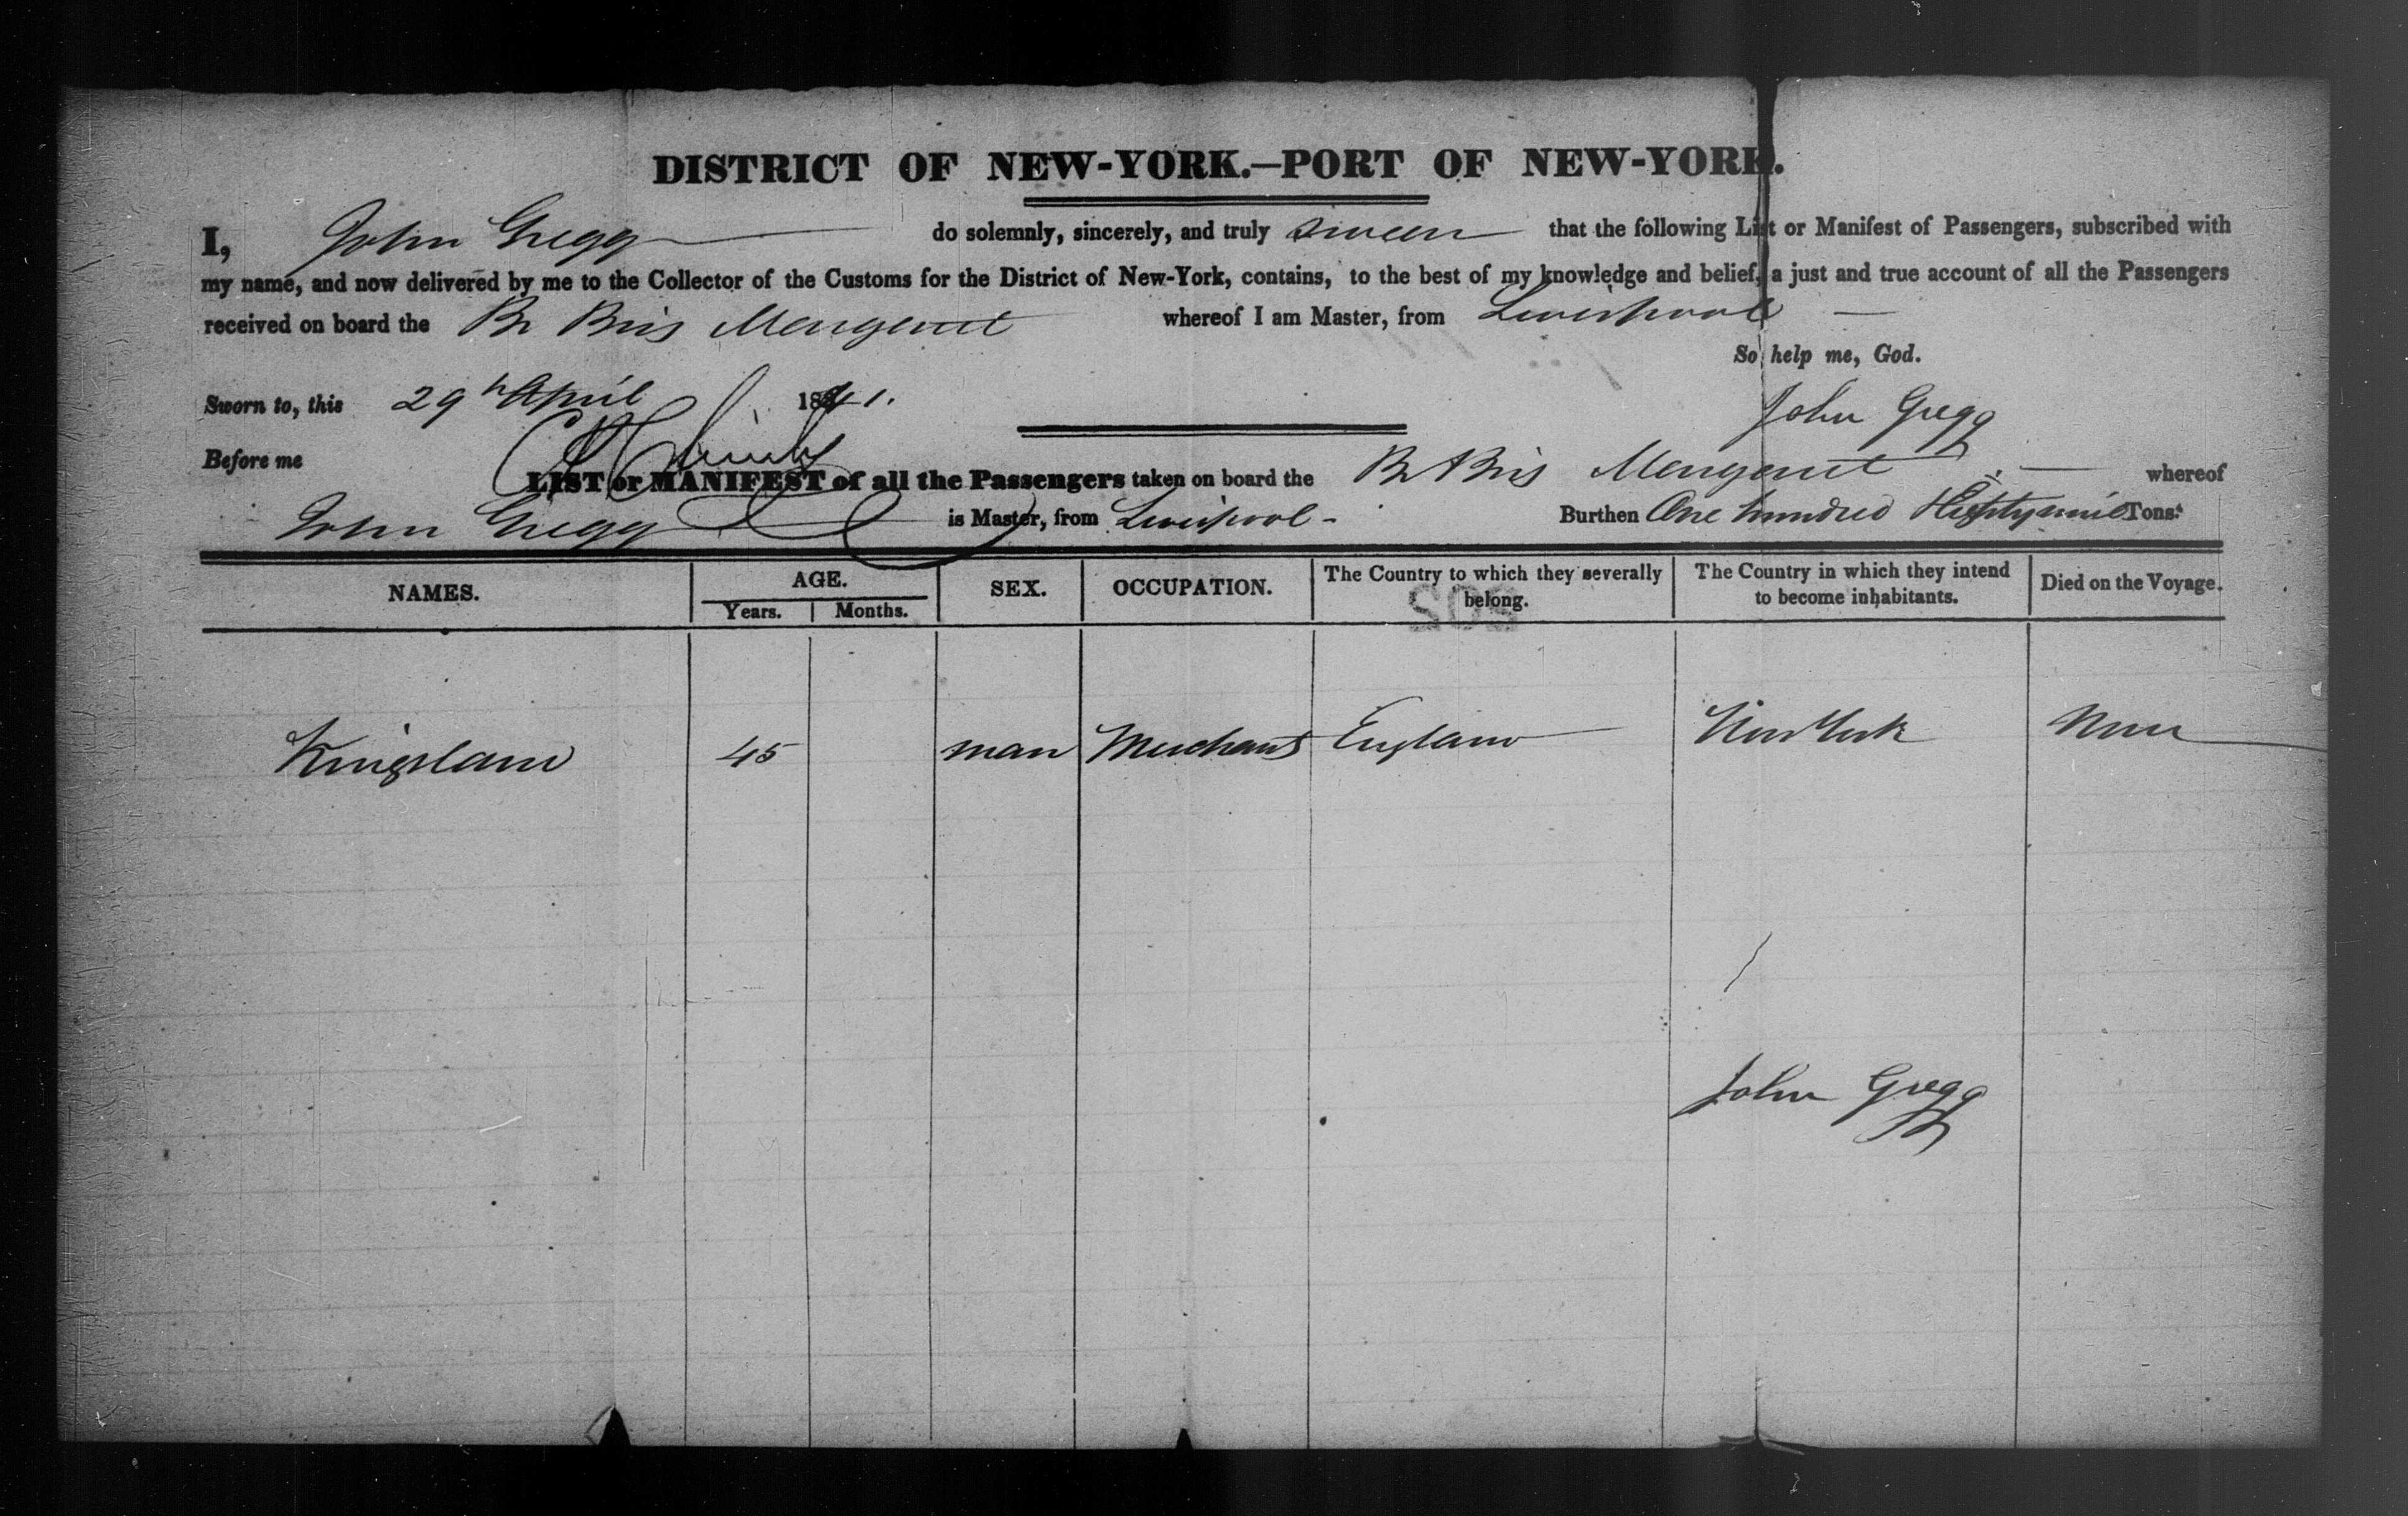 DISTRICT OF NEW-YORK.—PORT OF NEW-YORK.
I, John Gregg do solemnly, sincerely, and truly swear that the following List or Manifest of Passengers, subscribed with
my name, and now delivered by me to the Collector of the Customs for the District of New-York, contains, to the best of my knowledge and belief, a just and true account of all the Passengers
received on board the Br Brig Margaret whereof I am Master, from Liverpool
So help me, God.
Sworn to, this 29th April 1841. John Gregg
Before me
LIST or MANIFEST of all the Passengers taken on board the Br Brig Margaret whereof
John Gregg is Master, from Liverpool - Burthen One hundred Tons.
NAMES. AGE. SEX. OCCUPATION. The Country to which they severally belong. The Country in which they intend to become inhabitants. Died on the Voyage.
Years. Months.
Kingsland 45 man Merchant England New York None
John Gregg